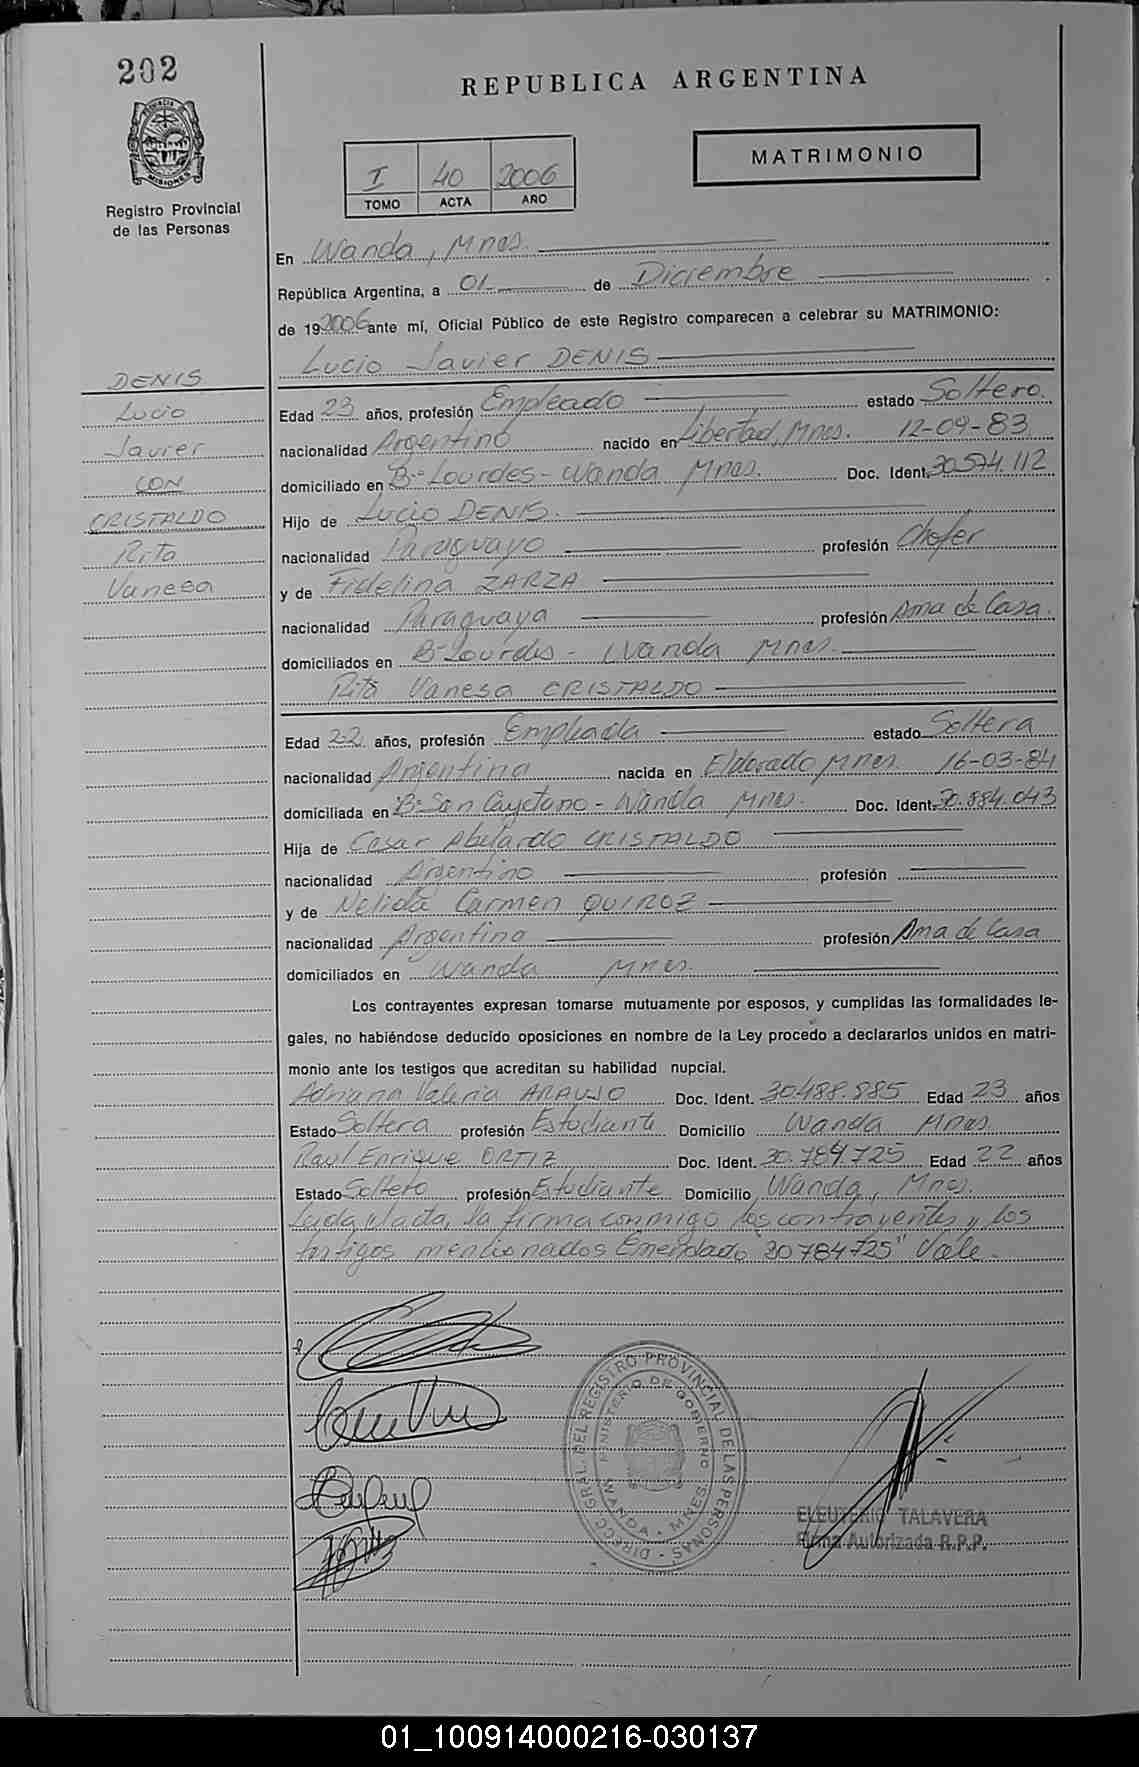 202
REPUBLICA ARGENTINA
PROVINCIA DE
MISIONES
Registro Provincial
de las Personas
I 40 2006
TOMO ACTA AÑO
MATRIMONIO
En Wanda, Mnes.
República Argentina, a 01 de Diciembre
de 192006 ante mí, Oficial Público de este Registro comparecen a celebrar su MATRIMONIO:
Lucio Javier DENIS
DENIS
Lucio
Javier
CON
CRISTALDO
Rita
Vanesa
Edad 23 años, profesión Empleado estado Soltero.
nacionalidad Argentino nacido en Libertad, Mnes. 12-09-83
domiciliado en B° Lourdes - Wanda Mnes. Doc. Ident. 30.574.112
Hijo de Lucio DENIS.
nacionalidad Paraguayo profesión Chofer
y de Fidelina ZARZA
nacionalidad Paraguaya profesión Ama de Casa.
domiciliados en B° Lourdes - Wanda Mnes.
Rita Vanesa CRISTALDO
Edad 22 años, profesión Empleada estado Soltera
nacionalidad Argentina nacida en Eldorado Mnes. 16-03-84
domiciliada en B° San Cayetano - Wanda Mnes. Doc. Ident. 30.884.043
Hija de Cesar Abelardo CRISTALDO
nacionalidad Argentino profesión
y de Nelida Carmen QUIROZ
nacionalidad Argentina profesión Ama de Casa
domiciliados en Wanda Mnes.
Los contrayentes expresan tomarse mutuamente por esposos, y cumplidas las formalidades le-
gales, no habiéndose deducido oposiciones en nombre de la Ley procedo a declararlos unidos en matri-
monio ante los testigos que acreditan su habilidad nupcial.
Adriana Valeria ARAUJO Doc. Ident. 30.488.885 Edad 23 años
Estado Soltera profesión Estudiante Domicilio Wanda Mnes
Raul Enrique ORTIZ Doc. Ident. 30.784.725 Edad 22 años
Estado Soltero profesión Estudiante Domicilio Wanda, Mnes.
Leida el acta, la firma conmigo los contrayentes y los
testigos mencionados Emendado "30784725" Vale.
DIRECC. GRAL. DEL REGISTRO PROVINCIAL DE LAS PERSONAS
MINISTERIO DE GOBIERNO
WANDA - MNES.
ELEUTERIO TALAVERA
Firma Autorizada R.P.P.
01_100914000216-030137